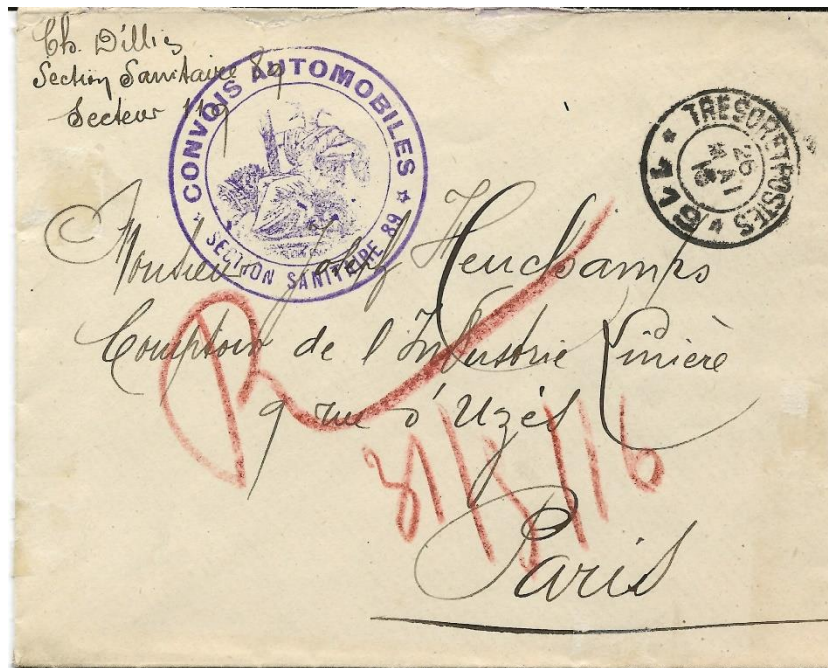 Ch. Dillis
Section Sanitaire 89
Secteur 119
CONVOIS AUTOMOBILES
* SECTION SANITAIRE 89 *
* TRESOR ET POSTES * 119
26
MAI
16
Monsieur Joseph Heuchamps
Comptoir de l'Industrie Linière
9 rue d'Uzès
Paris
R
31/5/16